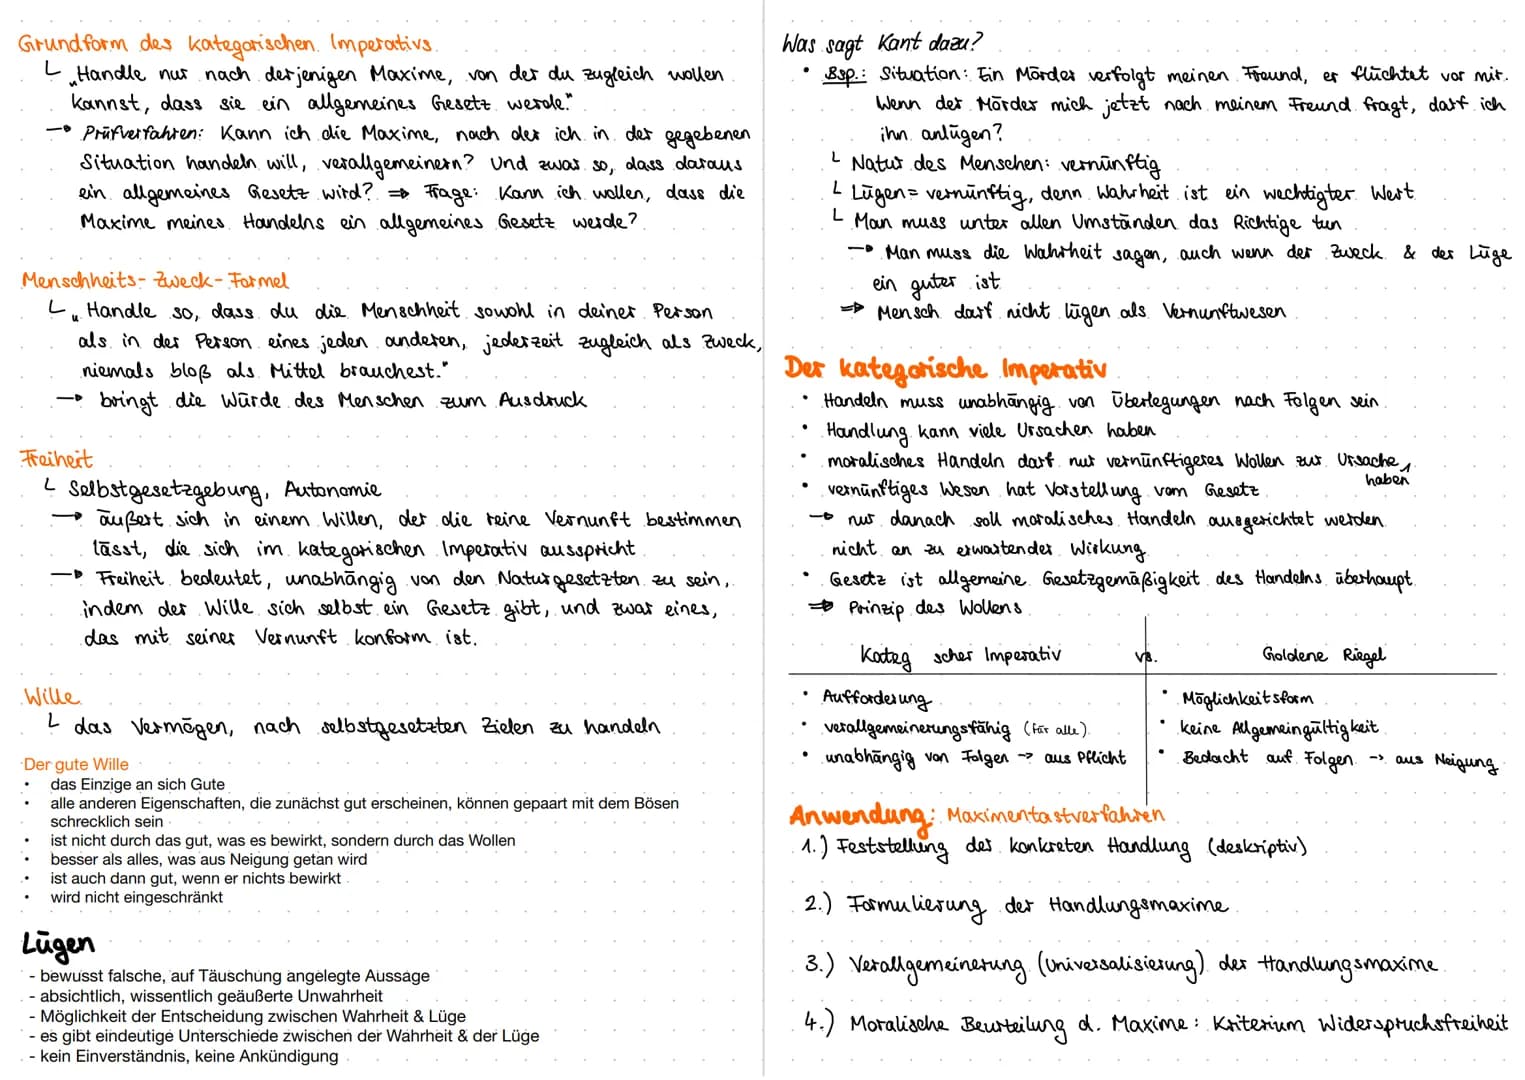 Grundform des kategorischen Imperativs
„Handle nur nach derjenigen Maxime, von der du zugleich wollen
kannst, dass sie ein allgemeines Gesetz werde."
→ Prüfverfahren: Kann ich die Maxime, nach der ich in der gegebenen
Situation handeln will, verallgemeinern? Und zwar so, dass daraus
ein allgemeines Gesetz wird? ⇒ Frage: Kann ich wollen, dass die
Maxime meines Handelns ein allgemeines Gesetz werde?
Menschheits-Zweck-Formel
„Handle so, dass du die Menschheit sowohl in deiner Person
als in der Person eines jeden anderen, jederzeit zugleich als Zweck,
niemals bloß als Mittel brauchest."
→ bringt die Würde des Menschen zum Ausdruck
Freiheit
Selbstgesetzgebung, Autonomie
→ äußert sich in einem Willen, der die reine Vernunft bestimmen
lässt, die sich im kategorischen Imperativ ausspricht
→ Freiheit bedeutet, unabhängig von den Naturgesetzten zu sein,
indem der Wille sich selbst ein Gesetz gibt, und zwar eines,
das mit seiner Vernunft konform ist.
Wille
das Vermögen, nach selbstgesetzten Zielen zu handeln
Der gute Wille
• das Einzige an sich Gute
• alle anderen Eigenschaften, die zunächst gut erscheinen, können gepaart mit dem Bösen
schrecklich sein
• ist nicht durch das gut, was es bewirkt, sondern durch das Wollen
• besser als alles, was aus Neigung getan wird
• ist auch dann gut, wenn er nichts bewirkt
• wird nicht eingeschränkt
Lügen
- bewusst falsche, auf Täuschung angelegte Aussage
- absichtlich, wissentlich geäußerte Unwahrheit
- Möglichkeit der Entscheidung zwischen Wahrheit & Lüge
- es gibt eindeutige Unterschiede zwischen der Wahrheit & der Lüge
- kein Einverständnis, keine Ankündigung
Was sagt Kant dazu?
• Bsp.: Situation: Ein Mörder verfolgt meinen Freund, er flüchtet vor mir.
Wenn der Mörder mich jetzt nach meinem Freund fragt, darf ich
ihn anlügen?
Natur des Menschen: vernünftig
Lügen = vernünftig, denn Wahrheit ist ein wechtigter Wert
Man muss unter allen Umständen das Richtige tun
→ Man muss die Wahrheit sagen, auch wenn der Zweck & der Lüge
ein guter ist
⇒ Mensch darf nicht lügen als Vernunftwesen
Der kategorische Imperativ
• Handeln muss unabhängig von Überlegungen nach Folgen sein
• Handlung kann viele Ursachen haben
• moralisches Handeln darf nur vernünftigeres Wollen zur Ursache
haben
• vernünftiges Wesen hat Vorstellung vom Gesetz
→ nur danach soll moralisches Handeln ausgerichtet werden
nicht an zu erwartender Wirkung
• Gesetz ist allgemeine Gesetzgemäßigkeit des Handelns überhaupt
⇒ Prinzip des Wollens
Kateg scher Imperativ vs. Goldene Riegel
• Aufforderung • Möglichkeitsform
• verallgemeinerungsfähig (für alle) • keine Allgemeingültigkeit
• unabhängig von Folgen → aus Pflicht • Bedacht auf Folgen → aus Neigung
Anwendung: Maximentastverfahren
1.) Feststellung der konkreten Handlung (deskriptiv)
2.) Formulierung der Handlungsmaxime
3.) Verallgemeinerung (Universalisierung) der Handlungsmaxime
4.) Moralische Beurteilung d. Maxime: Kriterium Widerspruchsfreiheit